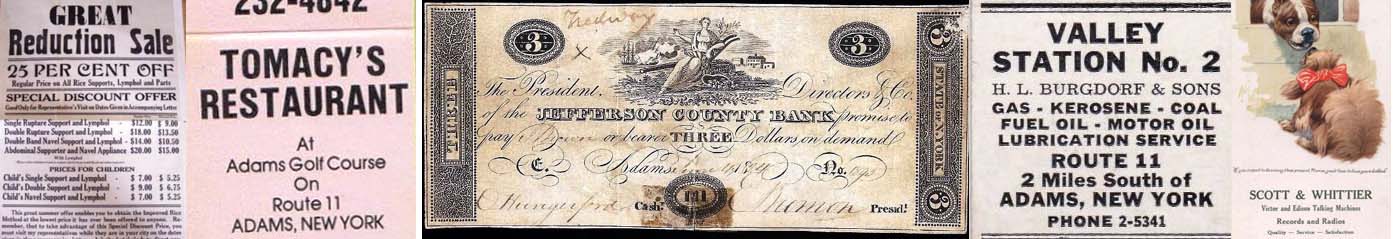 GREAT
Reduction Sale
25 PER CENT OFF
Regular Price on All Rice Supports, Lymphol and Parts
SPECIAL DISCOUNT OFFER
Good Only for Representative's Visit on Dates Given in Accompanying Letter
Single Rupture Support and Lymphol - $12.00 $ 9.00
Double Rupture Support and Lymphol - $18.00 $13.50
Double Band Navel Support and Lymphol - $14.00 $10.50
Abdominal Supporter and Navel Appliance $20.00 $15.00
With Lymphol
PRICES FOR CHILDREN
Child's Single Support and Lymphol - $ 7.00 $ 5.25
Child's Double Support and Lymphol - $ 9.00 $ 6.75
Child's Navel Support and Lymphol - $ 7.00 $ 5.25
This great summer offer enables you to obtain the Improved Rice
Method at the lowest price it has ever been offered to anyone. Re-
member, that to take advantage of this Special Discount Price, you
must visit my representatives while they are in your city on the dates
232-4842
TOMACY'S
RESTAURANT
At
Adams Golf Course
On
Route 11
ADAMS, NEW YORK
Tredway
3 3
X
THREE
STATE OF N. YORK
3 3
The President, Directors & Co.
of the JEFFERSON COUNTY BANK promise to
pay or bearer THREE Dollars, on demand
E. Adams No.
Hungerford Cash.r III Presid.t
VALLEY
STATION No. 2
H. L. BURGDORF & SONS
GAS - KEROSENE - COAL
FUEL OIL - MOTOR OIL
LUBRICATION SERVICE
ROUTE 11
2 Miles South of
ADAMS, NEW YORK
PHONE 2-5341
SCOTT & WHITTIER
Victor and Edison Talking Machines
Records and Radios
Quality - Service - Satisfaction